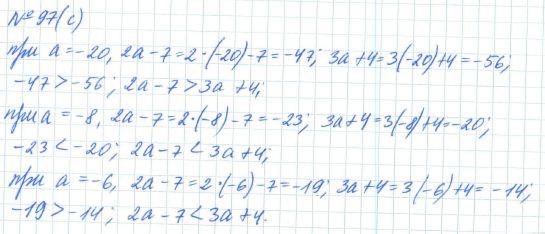 № 97(с)
при a = -20, 2a - 7 = 2 · (-20) - 7 = -47; 3a + 4 = 3(-20) + 4 = -56;
-47 > -56; 2a - 7 > 3a + 4;
при a = -8, 2a - 7 = 2 · (-8) - 7 = -23; 3a + 4 = 3(-8) + 4 = -20;
-23 < -20; 2a - 7 < 3a + 4;
при a = -6, 2a - 7 = 2 · (-6) - 7 = -19; 3a + 4 = 3(-6) + 4 = -14;
-19 > -14; 2a - 7 < 3a + 4.